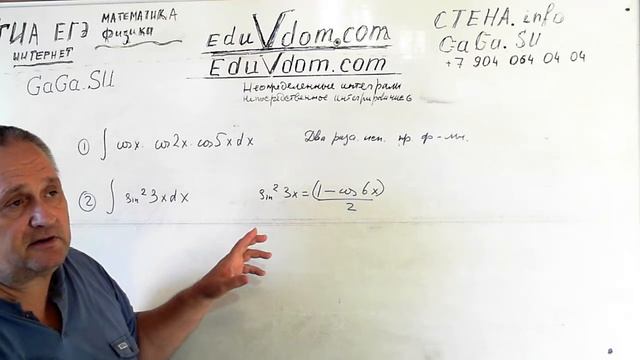 ГИА ЕГЭ МАТЕМАТИКА
физика
ИНТЕРНЕТ
GaGa.SU
EduVdom.com
EduVdom.com
Неопределенные интегралы
Непосредственное интегрирование
СТЕНА.info
GaGa.SU
+7 904 064 04 04
① ∫ cosx · cos2x · cos5x dx Два раза исп. пр. ф-лы.
② ∫ sin² 3x dx sin² 3x = (1 - cos 6x) / 2